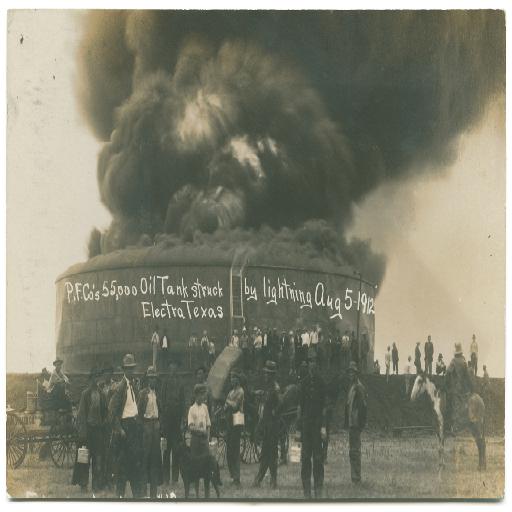 P.F.Co's 55,000 Oil Tank struck by lightning Aug 5-1912
Electra Texas